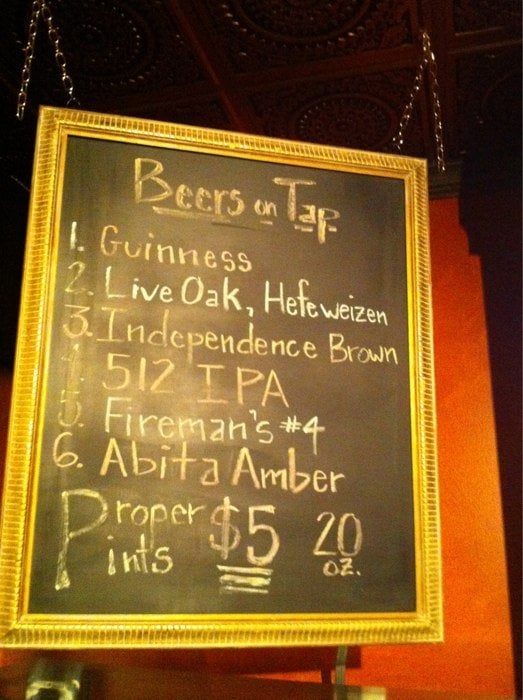 Beers on Tap
1. Guinness
2. Live Oak, Hefeweizen
3. Independence Brown
4. 512 IPA
5. Fireman's #4
6. Abita Amber
Proper Pints $5 20 oz.